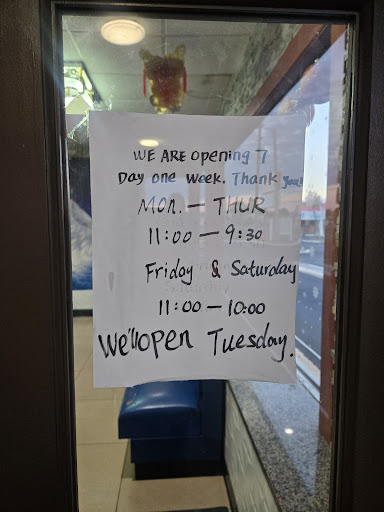 WE ARE Opening 7
Day one week. Thank you!
MON. — THUR
11:00 — 9:30
Friday & Saturday
11:00 — 10:00
We'll open Tuesday.